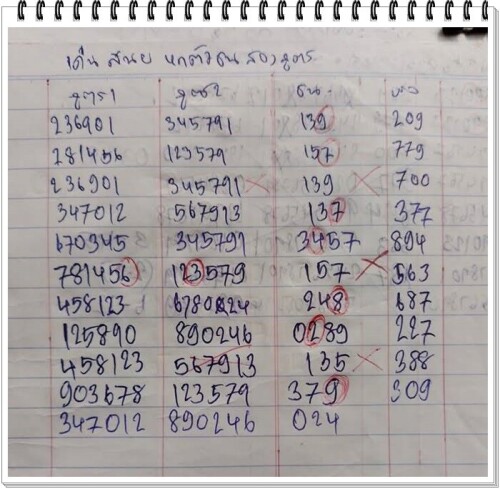 เดิน สนย หกตัวชน สองสูตร
สูตร1 สูตร2 ชน
236901 345791 139 209
281456 123579 157 779
236901 345791 139 700
347012 567913 137 377
670345 345791 3457 894
781456 123579 157 563
458123 6780824 248 687
125890 890246 0289 227
458123 567913 135 388
903678 123579 379 309
347012 890246 024